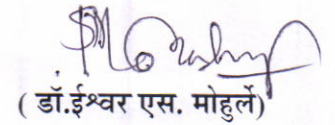 ( डॉ.ईश्वर एस. मोहुर्ले)